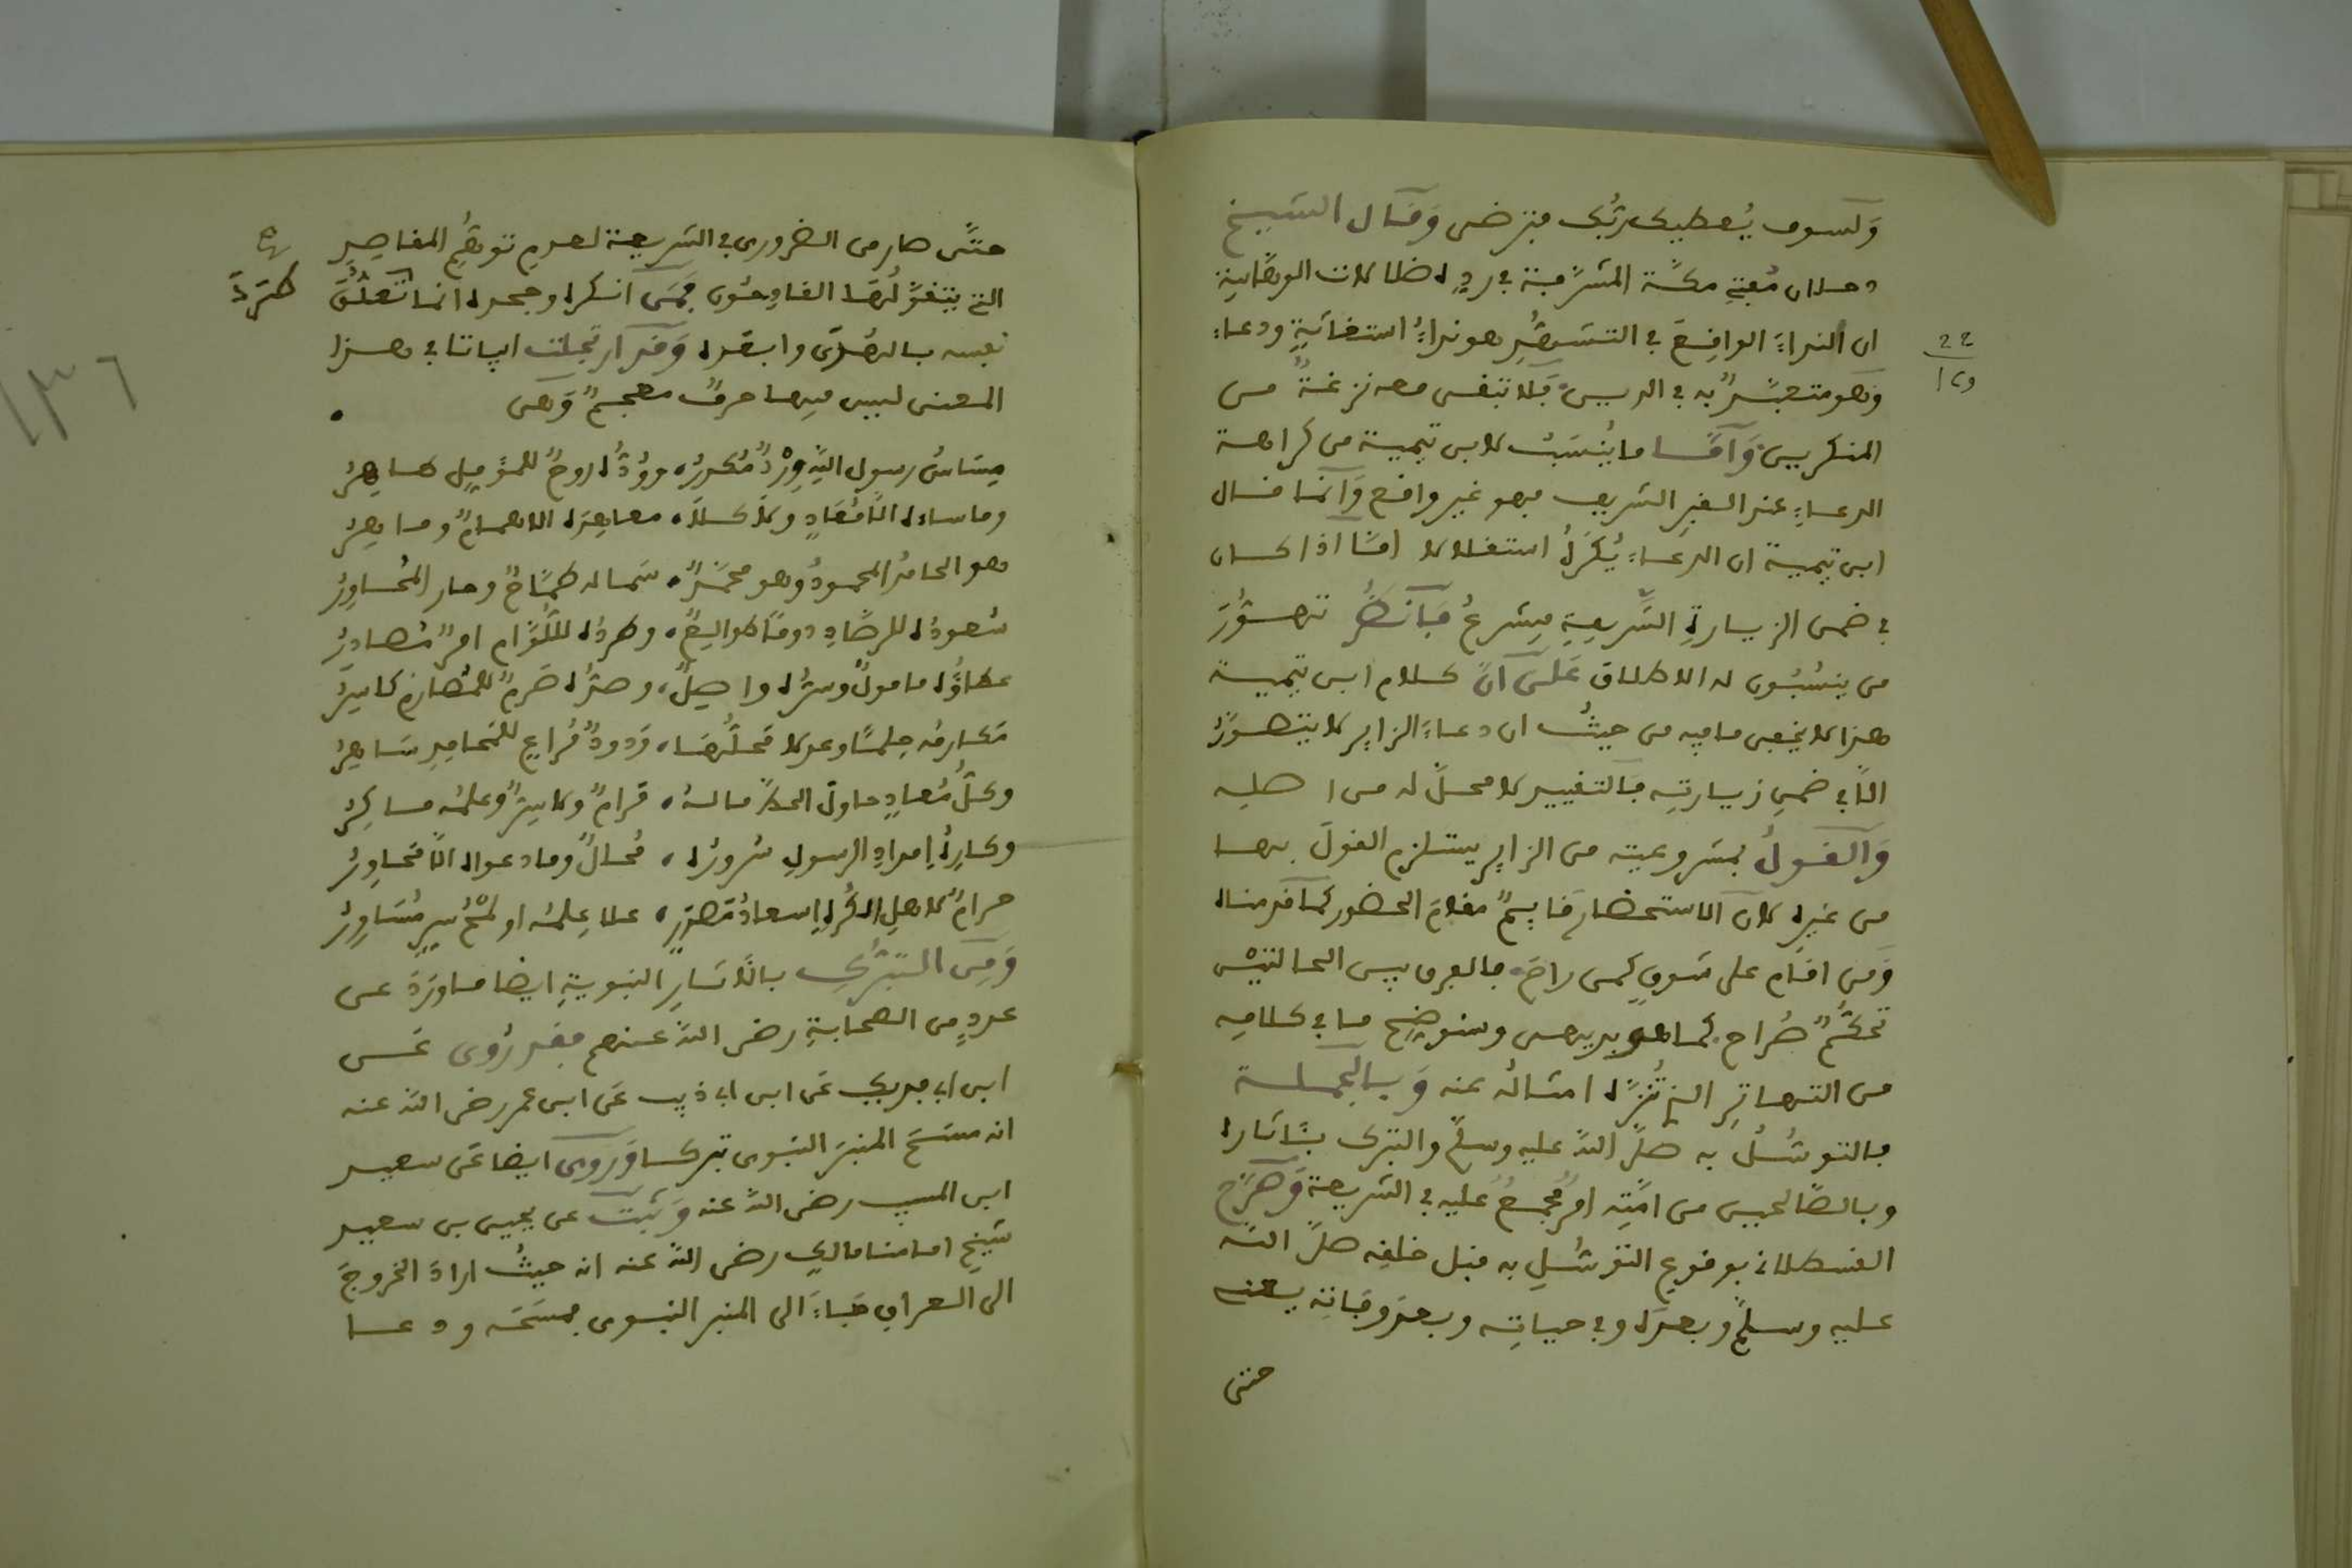 وَلسوف يُعطيك ربُّك فترضى وَقَال الشيخ
دحلان مُفتِي مكَّة المشرَّفة في ردِّه ضلالات الوهَّابية
ان النداءَ الواقِعَ في التشهُّدِ هو نداءُ استغاثةٍ ودعاء
وهو متعبَّدٌ به في الدين فلا تبقى معه نزغةٌ من
المنكرين وَأمَّا ما يُنسَبُ لابن تيمية من كراهة
الدعاءِ عند القبرِ الشريف فهو غير واقع وَانما قال
ابن تيمية ان الدعاءَ يُكرَهُ استقلالا امَّا اذا كان
في ضمن الزيارةِ الشَّريفةِ فيشرعُ فَانظُر تهوُّرَ
من ينسُبُون له الاطلاق عَلى انَّ كلام ابن تيمية
هذا لا يخفى ما فيه من حيثُ ان دعاءَ الزاير لا يتصوَّرُ
الَّا في ضمنِ زيارتِه فالتقييد لا محلَّ له من اصلِه
وَالقولُ بمشروعيته من الزاير يستلزم القولَ بها
من غيره لان الاستحضار قايمٌ مقامَ الحضور كما قد قال
وَمن اقام على شوقٍ كمن راحَ فالفرق بين الحالتيْن
تحكُّمٌ صُراح كما هو بديهى وسنوضح ما في كلامِه
من التهاتِر الذي تُنزَّه امثاله عنه وَبالجملة
فالتوسُّلُ به صلَّى اللَّه عليه وسلَّم والتبرك بئَاثاره
وبالصَّالحين من امَّتِه امرٌ مُجمعٌ عليه في الشريعة وَصَرَّح
القسطلاني بوقوعِ التوسُّلِ به قبل خلقِه صلَّى اللَّه
عليه وسلَّم وبعدَه وفي حياتِه وبعد وفاتِه يعني
حتى
٢٤
١٢٥
حتَّى صار من الضرورى في الشريعة لعدم توهُّمِ المفاصِدِ
التي يتقوَّلُها القادِحُون فمَن انكره وجحده انما تعلُّقَ
نفسه بالهَوَى وابعده وَقد ارتجلت ابياتا في هذا
المعنى ليس فيها حرفٌ معجمٌ وَهى
مِسَاسُ رسول اللَّهِ وِرْدٌ مُكررُ، ووُدُّه روحٌ للمؤمِلِ طاهِرُ
وما ساءه الَّا مُعَادٍ وَلا كلا، معاهِدَه الا همامٌ وماهِرُ
هو الحامدُ المحمودُ وهو محمَّدٌ، سماله طمَّاحٌ وحار المُحاوِرُ
سُعودُه للرصَّادِ دومًا طوالِعٌ، وطردُه للُّوَّام امرٌ مُصادِرُ
عطاؤُه مامولٌ وسرُّه واصِلٌ، وصدُّه صَرمٌ للمُصارِم كاسِرُ
مكارمُه حِلمًا وعدلا محلُّها، ودودٌ مُراعٍ للمحامِدِ ساهِرُ
وكلُّ مُعادٍ حاول الحدَّ ماله، مُرامٌ وكاسِدٌ وعلمُه ماكِرُ
وكارِهُ إمدادِ الرسولِ سُرورُه، مُحالٌ وما دعواه الَّا مُحاوِرُ
حرامٌ لاهلِ الكُرهِ إسعادُ مَصدرٍ، علا عِلمُه او لمْحُ سِرٍّ مُسَاوِرُ
وَمِن التبرُّكِ بالَاثارِ النبويةِ ايضا ما ورَدَ عن
عددٍ من الصحابةِ رضى اللَّه عنهم فقد رُوى عَن
ابن ابى فديك عَن ابن ابى ذيب عَن ابن عمر رضى اللَّه عنه
انه مسَحَ المنبرَ النبوى تبركا وَرَوى ايضا عَن سعيد
ابن المسيب رضى اللَّه عنه وَثبَتَ عن يحيى بن سعيد
شيخِ امامنا مالكٍ رضى اللَّه عنه انه حيثُ ارادَ الخروجَ
الى العراق جَاءَ الى المنبر النبوى فمسَحَه ودعا
طَرَدَ
١٣٦